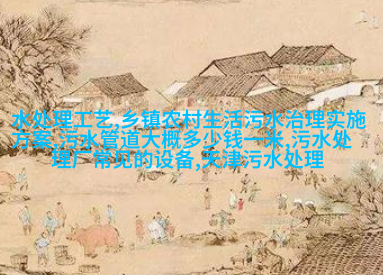 水处理工艺,乡镇农村生活污水治理实施
方案,污水管道大概多少钱一米,污水处
理厂常见的设备,天津污水处理